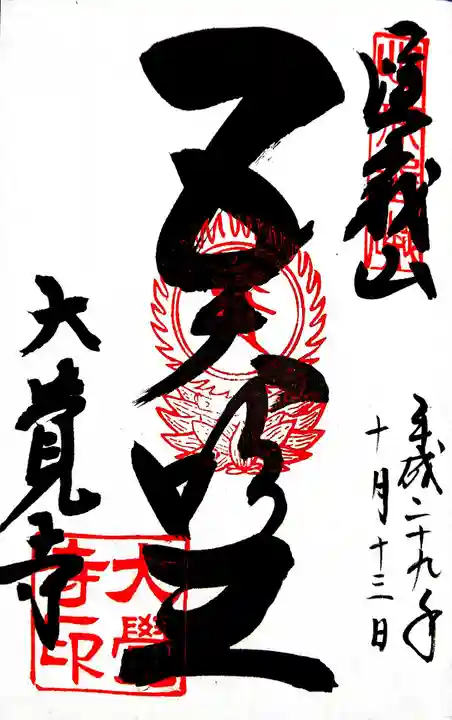 嵳峩山
平成二十九年
十月十三日
五大明王
大覚寺
大覺
寺印